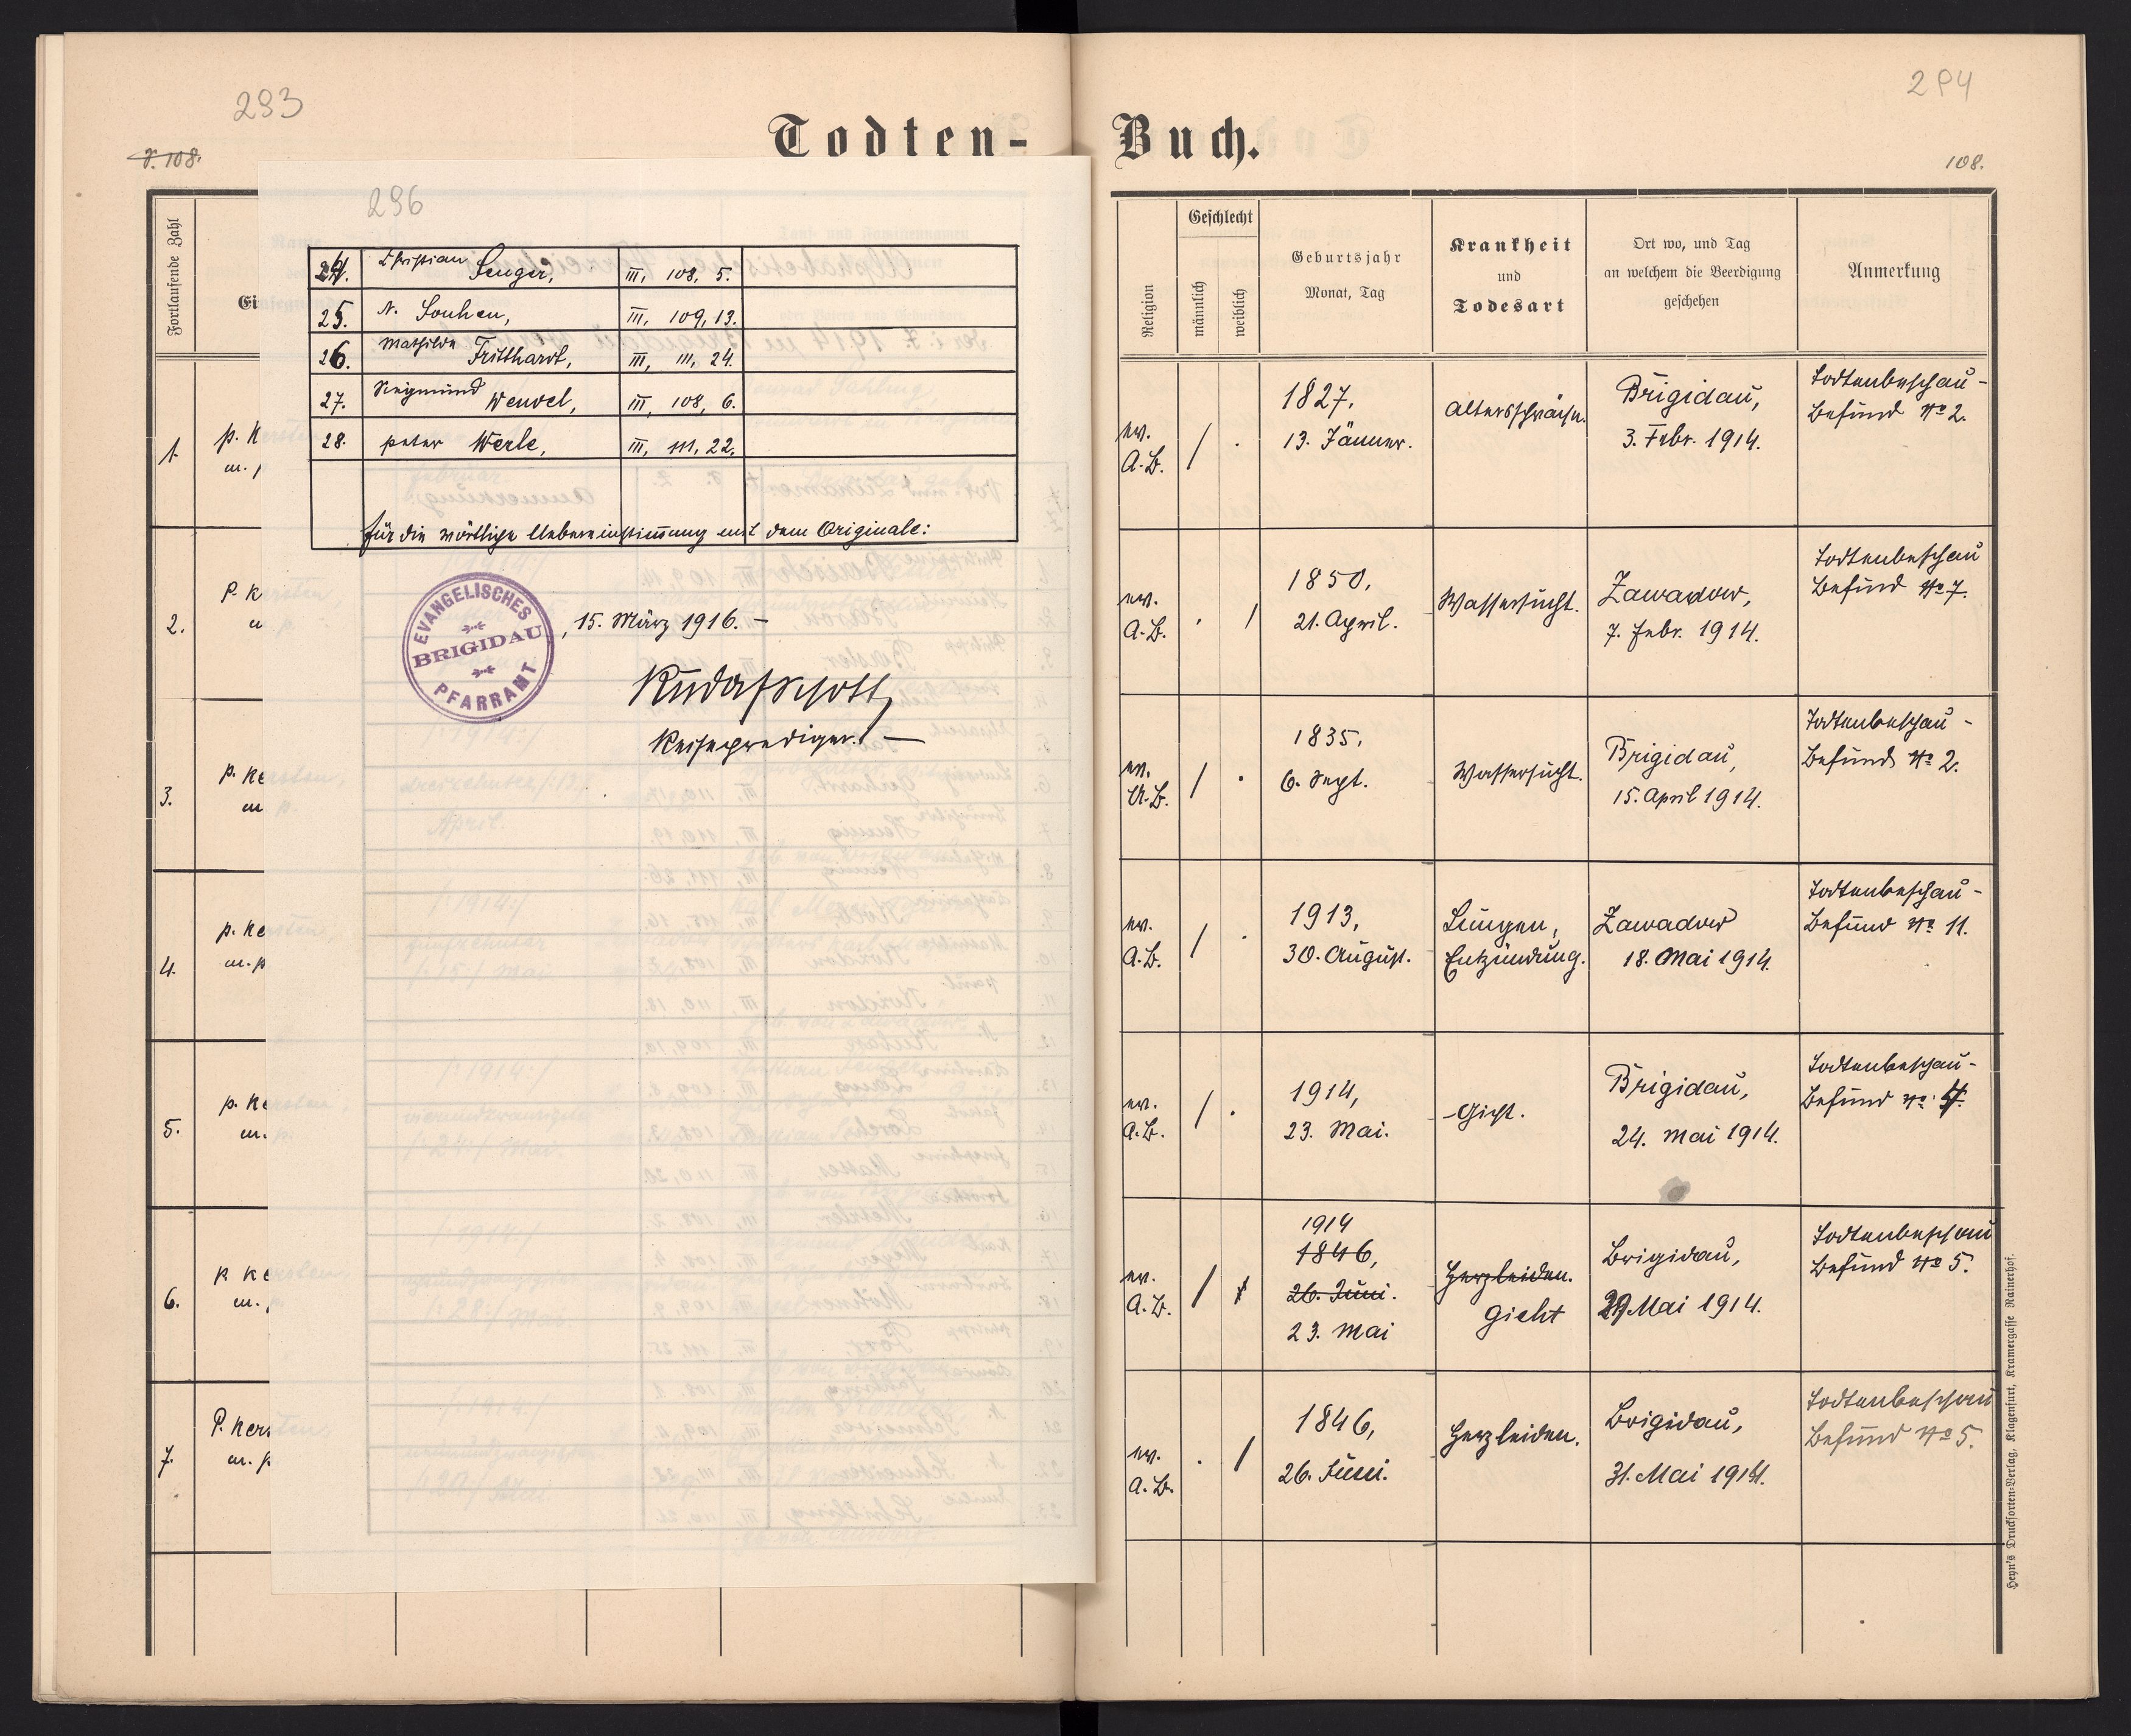 293
S. 108.
Todten-
Fortlaufende Zahl
Ei
1.
p. K
m. p
2.
P. K
m
3.
p. Ke
m
4.
p. Ke
m. p
5.
p. Ke
m.
6.
p Ke
m.
7.
P. Kers
m. p
296
24. Christian Senger, III, 108, 5.
25. N. Souhen, III, 109, 13.
26. Mathilde Fritthardt, III, 111, 24.
27. Siegmund Wendel, III, 108, 6.
28. Peter Werle, III, 111, 22.
für die wörtliche Uebereinstimmung mit dem Originale:
EVANGELISCHES
BRIGIDAU
PFARRAMT
, 15. März 1916. –
Reiseprediger. –
294
Buch.
108.
Religion
Geschlecht
männlich
weiblich
Geburtsjahr
Monat, Tag
Krankheit
und
Todesart
Ort wo, und Tag
an welchem die Beerdigung
geschehen
Anmerkung
ev.
A. B.
/ .
1827,
13. Jänner.
Altersschwäche.
Brigidau,
3. Febr. 1914.
Todtenbeschau-
Befund No 2.
ev.
A. B.
. /
1850,
21. April.
Wassersucht.
Zawadow,
7. Febr. 1914.
Todtenbeschau
Befund No 7.
ev.
A. B.
/ .
1835,
6. Sept.
Wassersucht.
Brigidau,
15. April 1914.
Todtenbeschau-
Befund No 2.
ev.
A. B.
/ .
1913,
30. August.
Lungen,
Entzündung.
Zawadow
18. Mai 1914.
Todtenbeschau-
Befund No 11.
ev.
A. B.
/ .
1914,
23. Mai.
Gicht.
Brigidau,
24. Mai 1914.
Todtenbeschau-
Befund No 4.
ev.
A. B.
/
1914
1846,
26. Juni.
23. Mai
Herzleiden.
Gicht
Brigidau,
29 Mai 1914.
Todtenbeschau
Befund No 5.
ev.
A. B.
. /
1846,
26. Juni.
Herzleiden.
Brigidau,
31. Mai 1914.
Todtenbeschau
Befund No 5.
Heyn's Drucksorten-Verlag, Klagenfurt, Kramergasse Rainerhof.